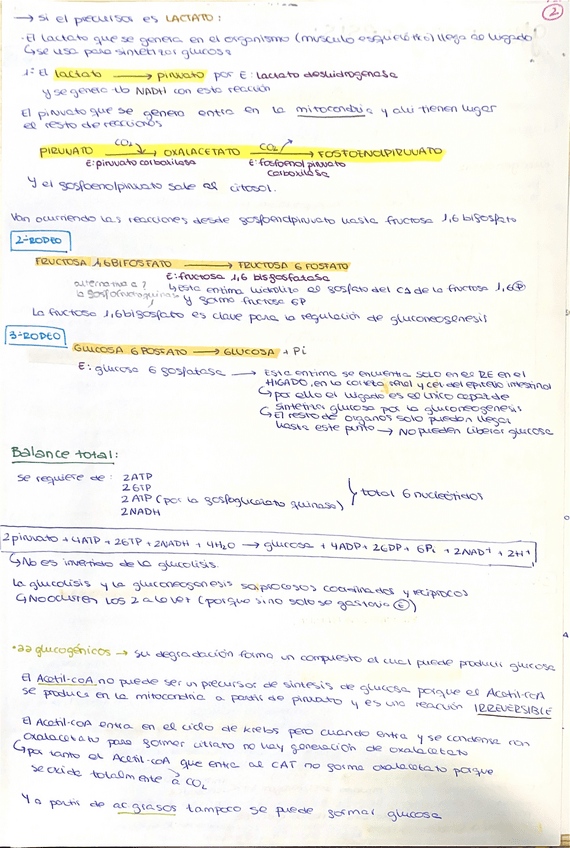 2
→ Si el precursor es LACTATO:
· El lactato que se genera en el organismo (musculo esquelético) llega al hígado
↳ se usa para sintetizar glucosa
1: El lactato → piruvato por E: lactato deshidrogenasa
y se genera 1b NADH con esta reacción
El piruvato que se genera entra en la mitocondria y ahí tienen lugar
el resto de reacciones
CO₂ CO₂
PIRUVATO → OXALACETATO → FOSFOENOLPIRUVATO
E: piruvato carboxilasa E: fosfoenol piruvato
carboxilasa
Y el fosfoenolpiruvato sale al citosol.
Van ocurriendo las reacciones desde fosfoenolpiruvato hasta fructosa 1,6 bifosfato
2-RODEO
FRUCTOSA 1,6 BIFOSFATO → FRUCTOSA 6 FOSFATO
E: fructosa 1,6 bisfosfatasa
alternativa a ? ↳ esta enzima hidroliza el fosfato del C1 de la fructosa 1,6 P
la fosfofructoquinasa y forma fructosa 6P
La fructosa 1,6 bifosfato es clave para la regulación de gluconeogenesis
3-RODEO
GLUCOSA 6 FOSFATO → GLUCOSA + Pi
E: glucosa 6 fosfatasa → Esta enzima se encuentra solo en el RE en el
HÍGADO, en la corteza renal y cel del epitelio intestinal
↳ por ello el hígado es el único capaz de
sintetizar glucosa por la gluconeogénesis
↳ El resto de órganos solo pueden llegar
hasta este punto → NO pueden liberar glucosa
Balance total:
se requiere de: 2ATP
2GTP
2ATP (por la fosfoglicerato quinasa) } total 6 nucleótidos
2NADH
2 piruvato + 4ATP + 2GTP + 2NADH + 4H₂O → glucosa + 4ADP + 2GDP + 6Pi + 2NAD⁺ + 2H⁺
↳ No es invertido de la glucolisis.
La glucolisis y la gluconeogenesis son procesos coordinados y recíprocos
↳ No ocurren los 2 a la vez (porque si no solo se gastaría E)
· aa glucogénicos → su degradación forma un compuesto el cual puede producir glucosa
El Acetil-coA no puede ser un precursor de síntesis de glucosa porque el Acetil-coA
se produce en la mitocondria a partir de piruvato y es una reacción IRREVERSIBLE
El Acetil-coA entra en el ciclo de krebs pero cuando entra y se condensa con
oxalacetato para formar citrato no hay generación de oxalacetato
↳ por tanto el Acetil-coA que entra al CAT no forma oxalacetato porque
se oxida totalmente a CO₂
Y a partir de ac. grasos tampoco se puede formar glucosa